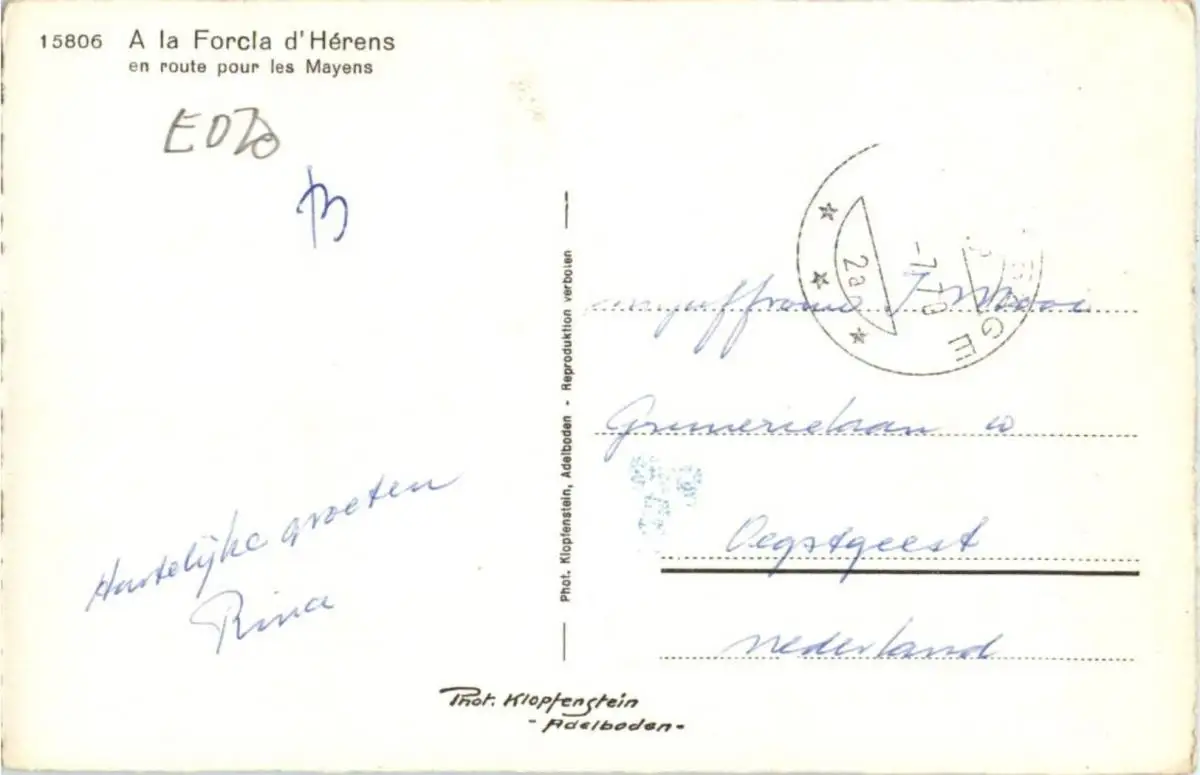 15806 A la Forcla d'Hérens
en route pour les Mayens
Hartelijke groeten
Rina
Phot. Klopfenstein, Adelboden - Reproduktion verboten
Mejuffrouw J. Mooi
Oegstgeest
nederland
Phot. Klopfenstein
- Adelboden -